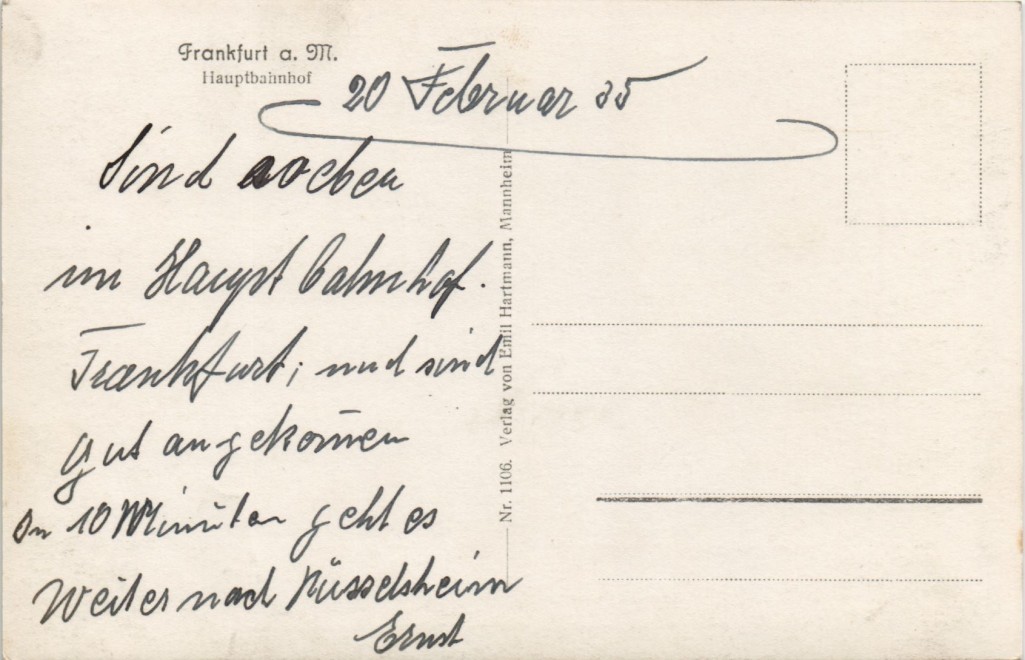 Frankfurt a. M.
Hauptbahnhof
20 Februar 35
Sind soeben
im Haupt bahnhof.
Frankfurt; und sind
gut angekom̅en
In 10 Minuten geht es
Weiter nach Rüsselsheim
Ernst
Nr. 1106. Verlag von Emil Hartmann, Mannheim